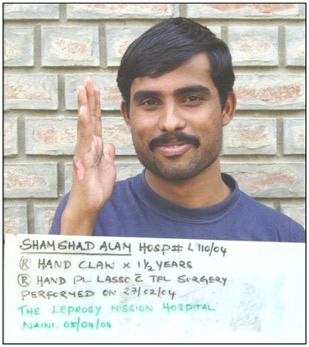 SHAMSHAD ALAM HOSP# L110/04
Ⓡ HAND CLAW × 1½ YEARS
Ⓡ HAND PL LASSO c̄ TPL SURGERY
PERFORMED ON 27/02/04
THE LEPROSY MISSION HOSPITAL
NAINI. 05/04/04